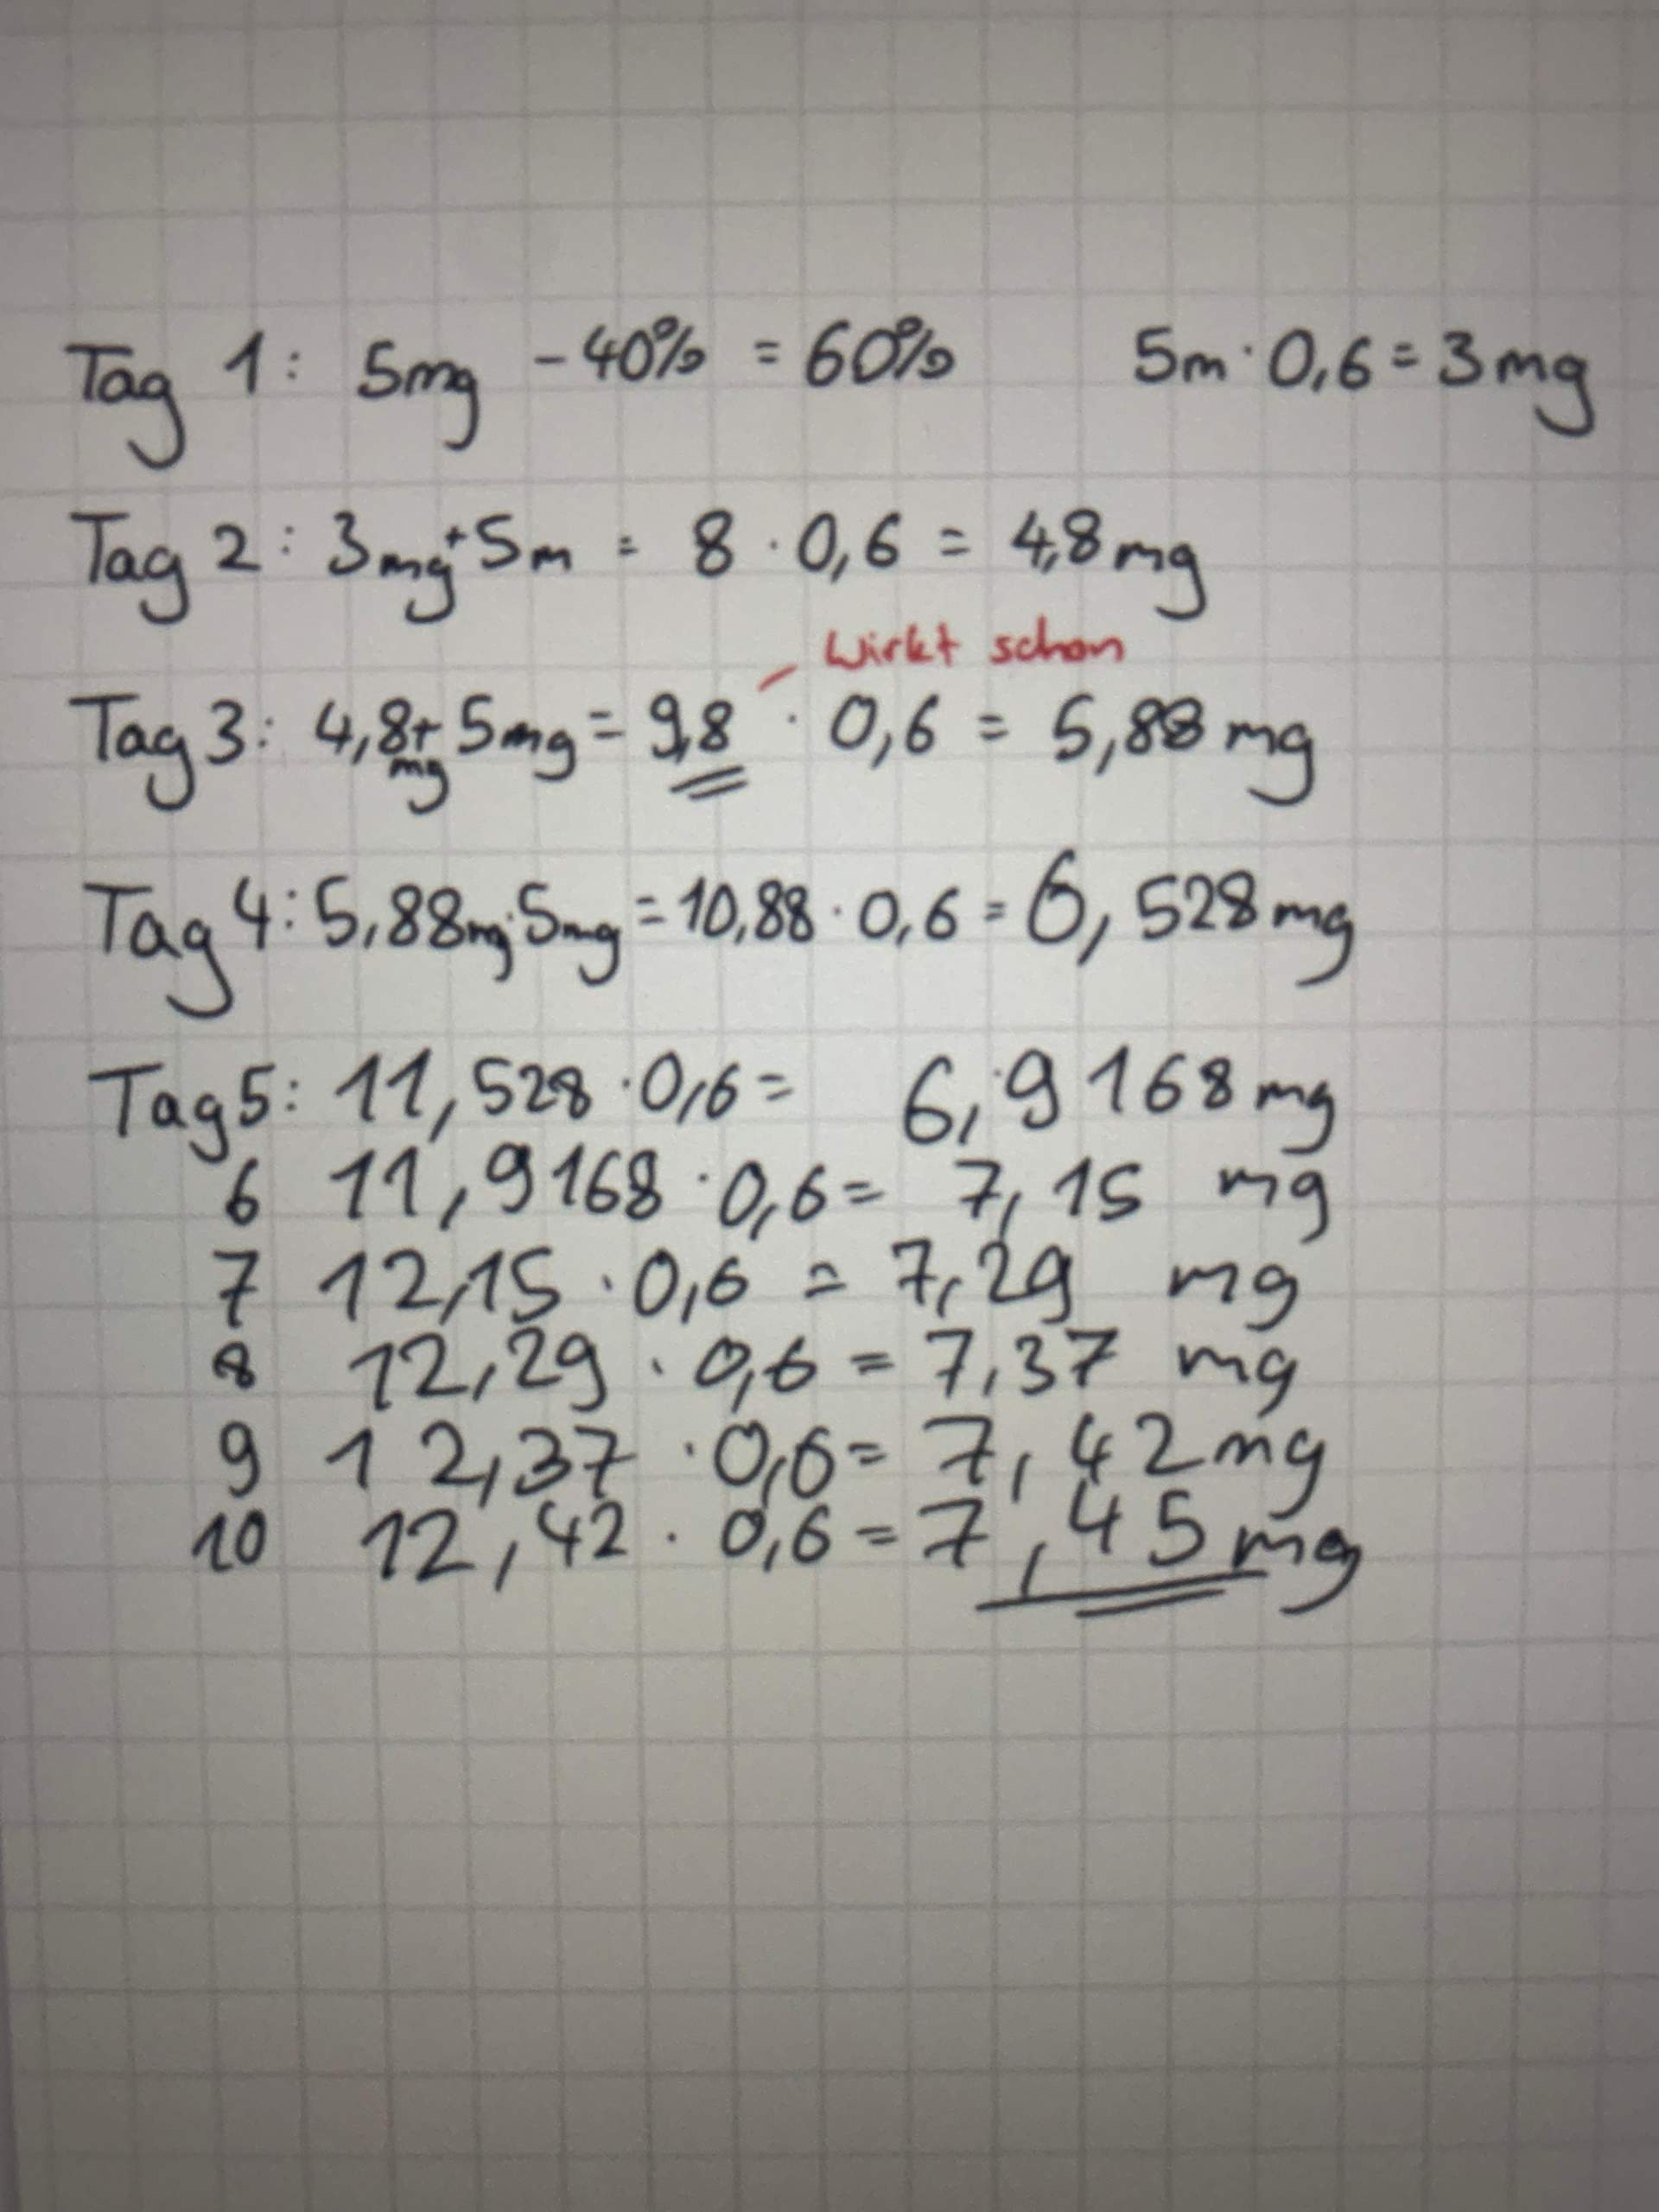 Tag 1: 5mg -40% = 60% 5m · 0,6 = 3mg
Tag 2: 3mg + 5m = 8 · 0,6 = 4,8mg
wirkt schon
Tag 3: 4,8mg + 5mg = 9,8 · 0,6 = 5,88 mg
Tag 4: 5,88mg · 5mg = 10,88 · 0,6 = 6,528mg
Tag 5: 11,528 · 0,6 = 6,9168mg
6 11,9168 · 0,6 = 7,15 mg
7 12,15 · 0,6 = 7,29 mg
8 12,29 · 0,6 = 7,37 mg
9 12,37 · 0,6 = 7,42mg
10 12,42 · 0,6 = 7,45mg